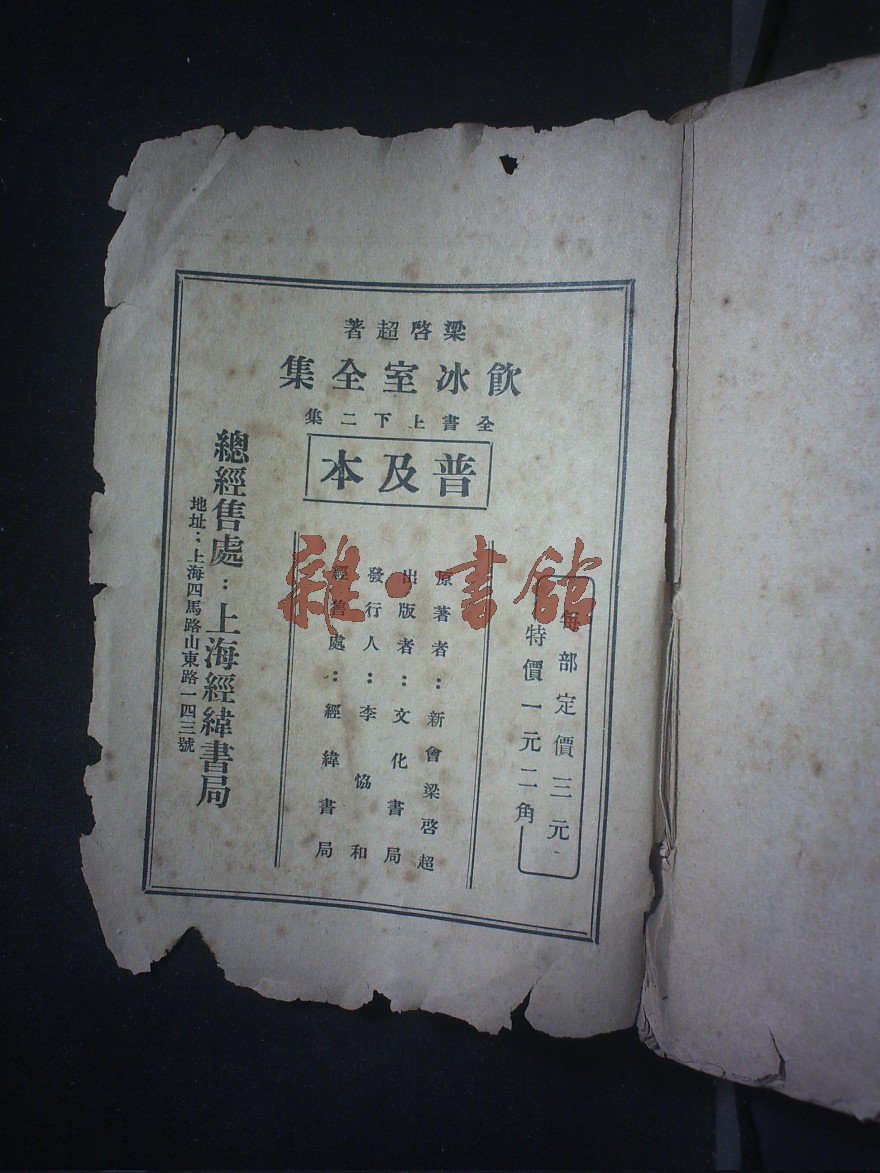 梁啓超著
飲冰室全集
全書上下二集
普及本
每部定價三元
特價一元二角
原著者：新會梁啓超
出版者：文化書局
發行人：李協和
經售處：經緯書局
總經售處：上海經緯書局
地址：上海四馬路山東路一四三號
雜·書館